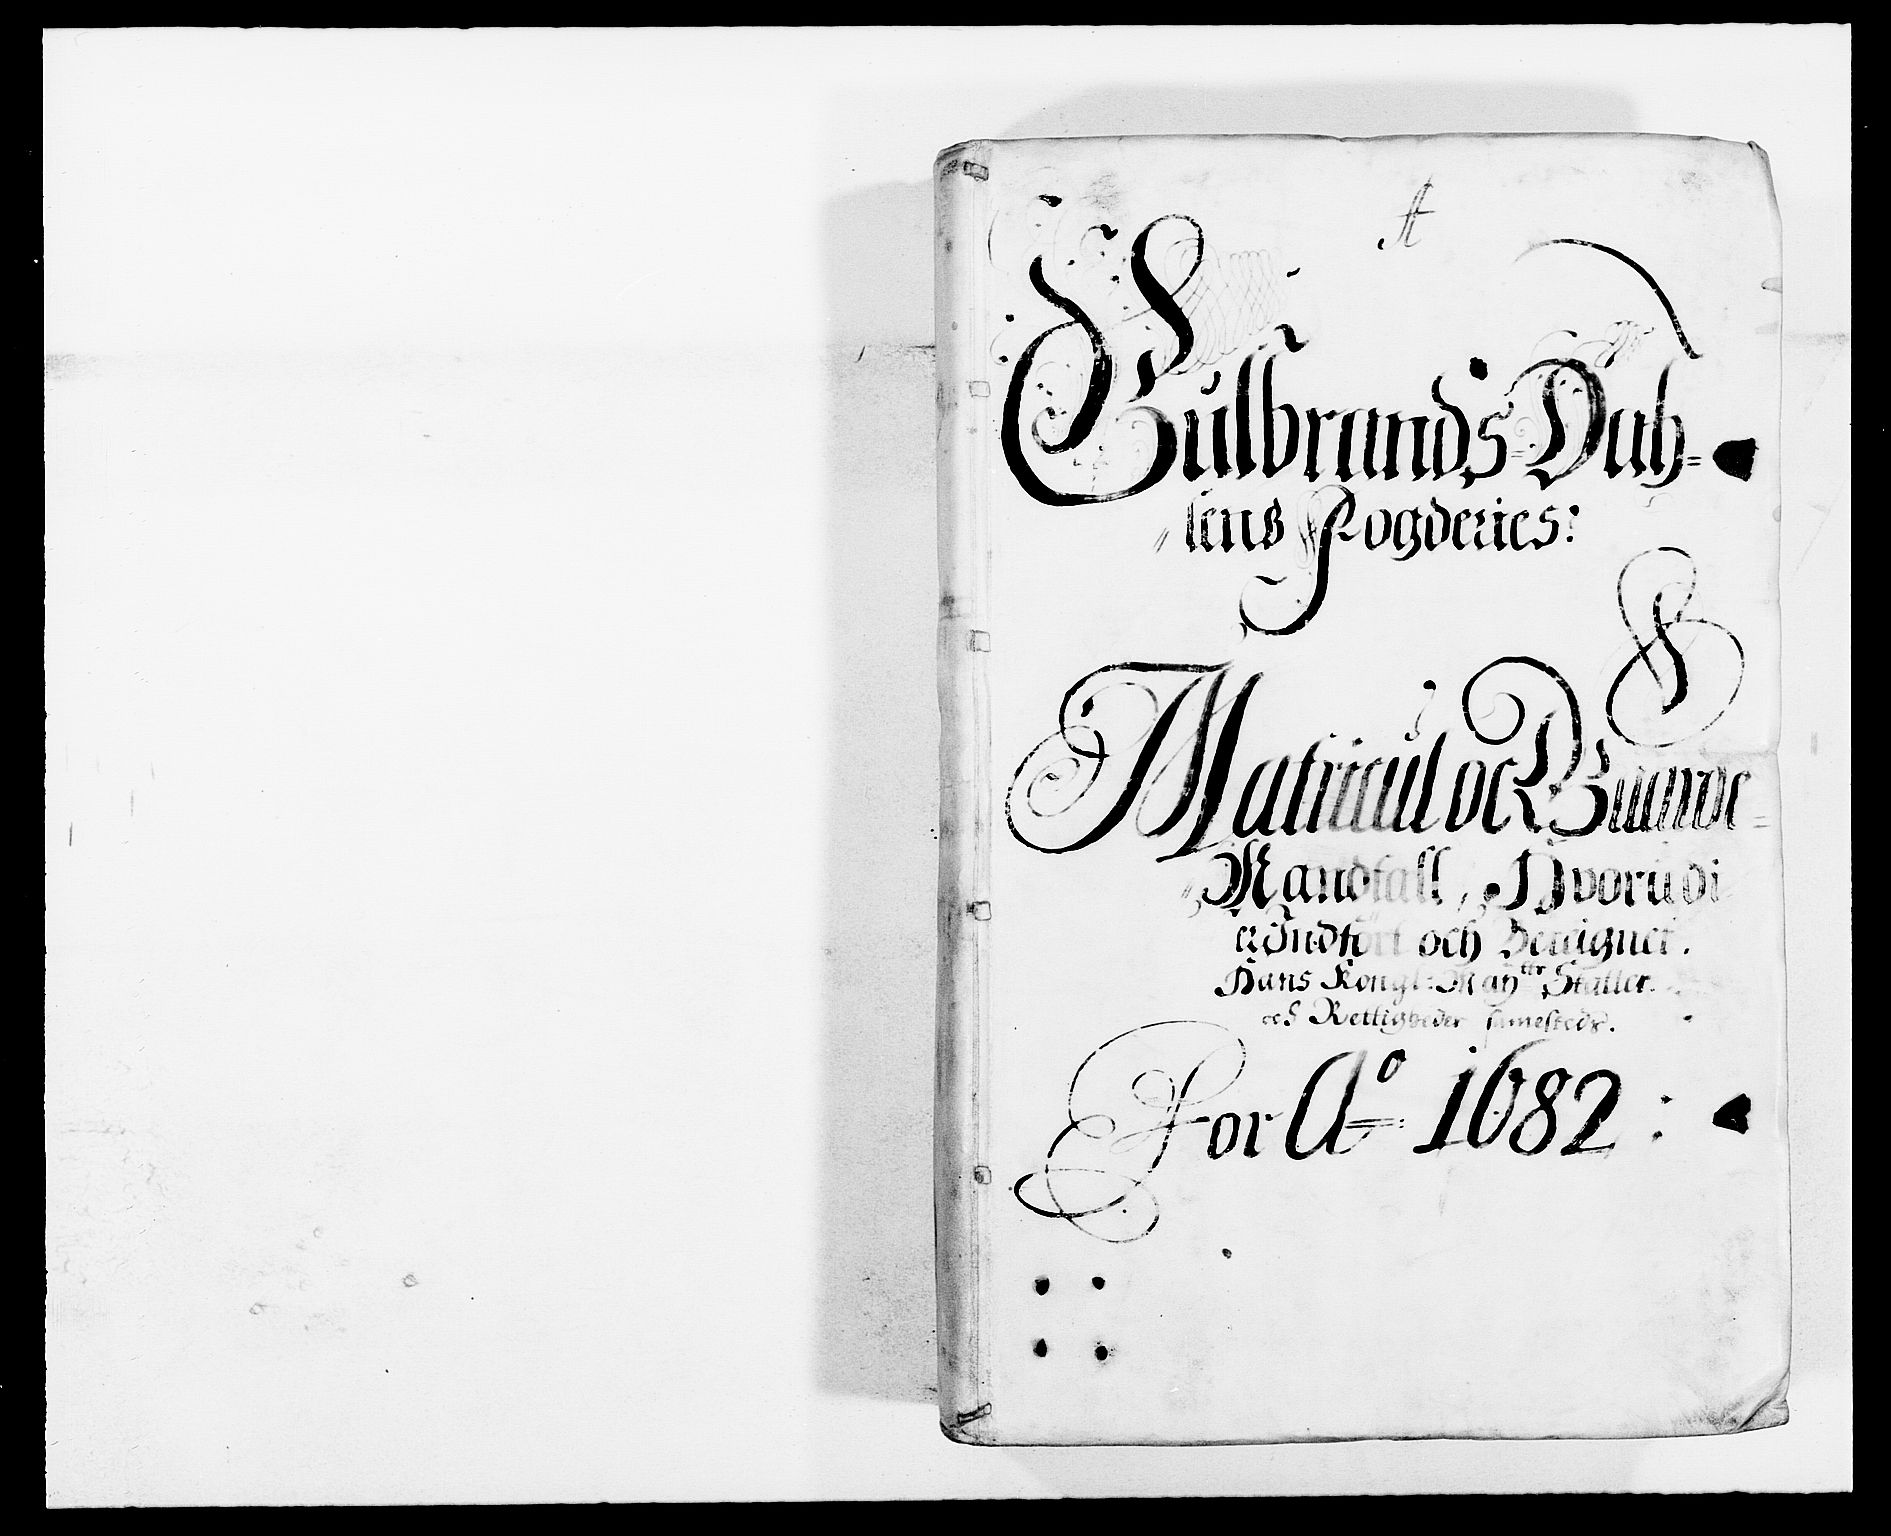 A
Gulbrands-Dah=
lens Fogderies:
Matricul och Bunde=
Mandtall, Hvorudi
er Indfört och Beregnet.
Hans Kongl: May:ttr Skatter
och Rettigheder sammesteds.
For Ao 1682: